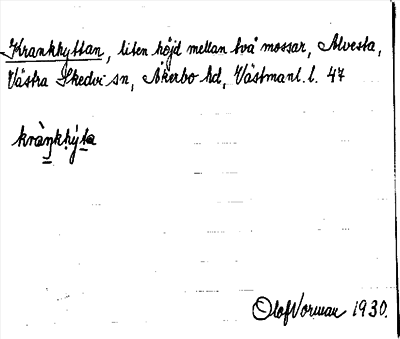 Krankhyttan, liten höjd mellan två mossar, Alvesta,
Västra Skedvi sn, Åkerbo hd, Västmanl. l. 47
kràŋkhýta
Olof Vorman 1930.